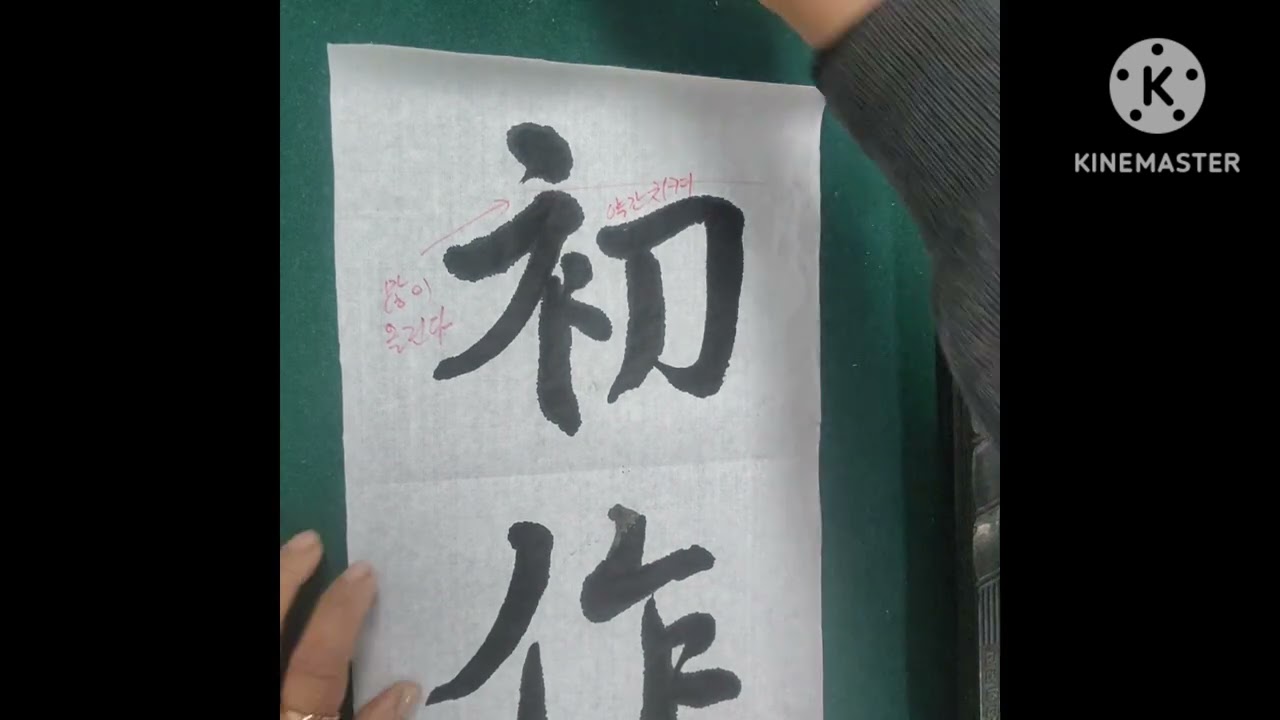 初
약간 치켜
많이
올린다
作
K
KINEMASTER